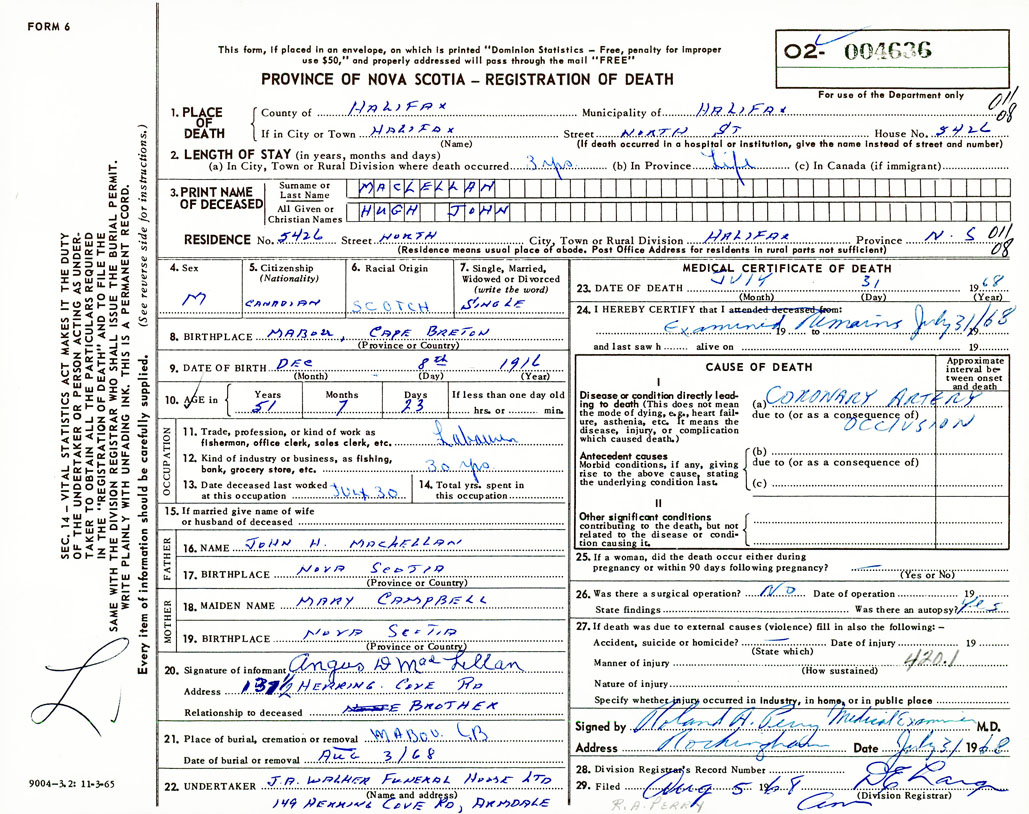 FORM 6
This form, if placed in an envelope, on which is printed "Dominion Statistics – Free, penalty for improper
use $50," and properly addressed will pass through the mail "FREE"
PROVINCE OF NOVA SCOTIA – REGISTRATION OF DEATH
O2- 004636
For use of the Department only
011
08
1. PLACE OF DEATH
County of HALIFAX Municipality of HALIFAX
If in City or Town HALIFAX Street NORTH ST House No. 5426
(Name) (If death occurred in a hospital or institution, give the name instead of street and number)
2. LENGTH OF STAY (in years, months and days)
(a) In City, Town or Rural Division where death occurred 3 yrs (b) In Province Life (c) In Canada (if immigrant)
3. PRINT NAME OF DECEASED
Surname or Last Name MACLELLAN
All Given or Christian Names HUGH JOHN
RESIDENCE No. 5426 Street NORTH City, Town or Rural Division HALIFAX Province N.S
011
08
(Residence means usual place of abode. Post Office Address for residents in rural parts not sufficient)
4. Sex
M
5. Citizenship
(Nationality)
CANADIAN
6. Racial Origin
SCOTCH
7. Single, Married,
Widowed or Divorced
(write the word)
SINGLE
8. BIRTHPLACE MABOU, CAPE BRETON
(Province or Country)
9. DATE OF BIRTH DEC 8th 1916
(Month) (Day) (Year)
10. AGE in
Years Months Days If less than one day old
51 7 23 hrs. or min.
OCCUPATION
11. Trade, profession, or kind of work as
fishermen, office clerk, sales clerk, etc. Labourer
12. Kind of industry or business, as fishing,
bank, grocery store, etc. 30 yrs
13. Date deceased last worked
at this occupation JULY 30
14. Total yrs. spent in
this occupation
15. If married give name of wife
or husband of deceased
FATHER
16. NAME JOHN H. MACLELLAN
17. BIRTHPLACE NOVA SCOTIA
(Province or Country)
MOTHER
18. MAIDEN NAME MARY CAMPBELL
19. BIRTHPLACE NOVA SCOTIA
(Province or Country)
20. Signature of informant Angus D MacLellan
Address 137½ HERRING COVE RD
Relationship to deceased BROTHER
21. Place of burial, cremation or removal MABOU CB
Date of burial or removal AUG 3/68
22. UNDERTAKER J.A. WALKER FUNERAL HOME LTD
(Name and address)
149 HERRING COVE RD, ARMDALE
MEDICAL CERTIFICATE OF DEATH
23. DATE OF DEATH JULY 31 1968
(Month) (Day) (Year)
24. I HEREBY CERTIFY that I attended deceased from:
Examined 19 to Remains July 31/68 19
and last saw h alive on 19
CAUSE OF DEATH
Approximate interval between onset and death
I
Disease or condition directly leading to death (This does not mean
the mode of dying, e.g., heart failure, asthenia, etc. It means the
disease, injury, or complication
which caused death.)
(a) CORONARY ARTERY
due to (or as a consequence of)
OCCLUSION
Antecedent causes
Morbid conditions, if any, giving
rise to the above cause, stating
the underlying condition last.
(b)
due to (or as a consequence of)
(c)
II
Other significant conditions
contributing to the death, but not
related to the disease or condition causing it.
25. If a woman, did the death occur either during
pregnancy or within 90 days following pregnancy?
(Yes or No)
26. Was there a surgical operation? NO Date of operation 19
State findings Was there an autopsy? Yes
27. If death was due to external causes (violence) fill in also the following: –
Accident, suicide or homicide? Date of injury 19
(State which)
Manner of injury 420.1
(How sustained)
Nature of injury
Specify whether injury occurred in industry, in home, or in public place
Signed by Roland A. Perry Medical Examiner M.D.
Address Rockingham Date July 31 1968
28. Division Registrar's Record Number
29. Filed Aug 5 1968
(Division Registrar)
R.A. PERRY
SEC. 14 – VITAL STATISTICS ACT MAKES IT THE DUTY
OF THE UNDERTAKER OR PERSON ACTING AS UNDERTAKER TO OBTAIN ALL THE PARTICULARS REQUIRED
IN THE "REGISTRATION OF DEATH" AND TO FILE THE
SAME WITH THE DIVISION REGISTRAR WHO SHALL ISSUE THE BURIAL PERMIT.
WRITE PLAINLY WITH UNFADING INK. THIS IS A PERMANENT RECORD.
Every item of information should be carefully supplied. (See reverse side for instructions.)
9004-3.2: 11-3-65